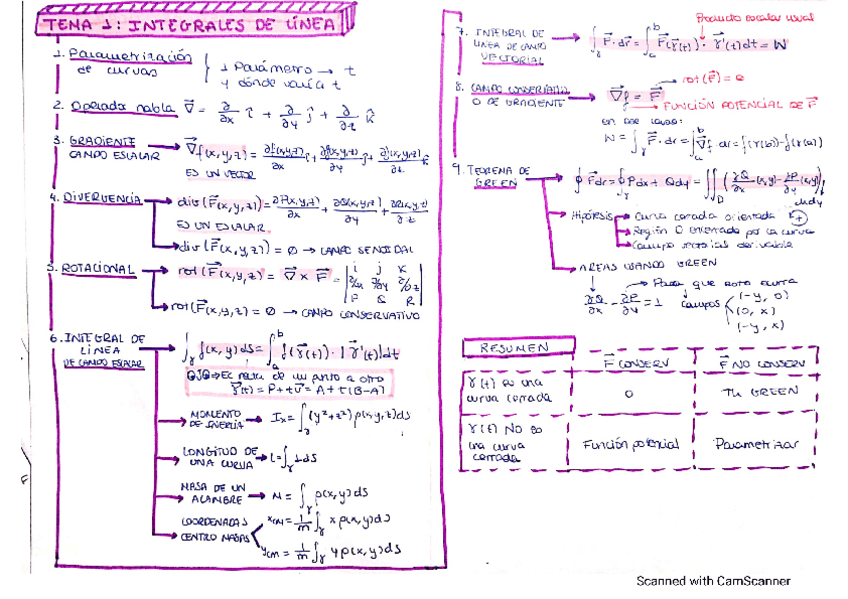 TEMA 1: INTEGRALES DE LÍNEA
1. Parametrización de curvas { 1 Parámetro → t
y dónde varía t
2. Operador nabla ∇⃗ = ∂/∂x î + ∂/∂y ĵ + ∂/∂z k̂
3. GRADIENTE CAMPO ESCALAR → ∇⃗f(x,y,z) = ∂f(x,y,z)/∂x î + ∂f(x,y,z)/∂y ĵ + ∂f(x,y,z)/∂z k̂
ES UN VECTOR
4. DIVERGENCIA → div(F⃗(x,y,z)) = ∂P(x,y,z)/∂x + ∂Q(x,y,z)/∂y + ∂R(x,y,z)/∂z
ES UN ESCALAR
div(F⃗(x,y,z)) = 0 → CAMPO SENOIDAL
5. ROTACIONAL → rot(F⃗(x,y,z)) = ∇⃗ × F⃗ = | i j k
∂/∂x ∂/∂y ∂/∂z
P Q R |
rot(F⃗(x,y,z)) = 0 → CAMPO CONSERVATIVO
6. INTEGRAL DE LÍNEA DE CAMPO ESCALAR → ∫γ f(x,y)ds = ∫ₐᵇ f(γ⃗(t)) · |γ⃗'(t)|dt
OJO → El recta de un punto a otro
γ⃗(t) = P + tv⃗ = A + t(B-A)
MOMENTO DE INERCIA → Ix = ∫γ (y²+z²) ρ(x,y,z)ds
LONGITUD DE UNA CURVA → L = ∫γ 1ds
MASA DE UN ALAMBRE → M = ∫γ ρ(x,y)ds
COORDENADAS CENTRO MASAS
xCM = 1/m ∫γ x ρ(x,y)ds
yCM = 1/m ∫γ y ρ(x,y)ds
Producto escalar usual
7. INTEGRAL DE LINEA DE CAMPO VECTORIAL → ∫γ F⃗ · dr⃗ = ∫ₐᵇ F⃗(γ⃗(t)) · γ⃗'(t)dt = W
8. CAMPO CONSERVATIVO O DE GRADIENTE → ∇⃗f = F⃗ → rot(F⃗) = 0
FUNCIÓN POTENCIAL DE F⃗
en ese caso:
W = ∫γ F⃗ · dr = ∫ₐᵇ ∇⃗f · dr = f(γ(b)) - f(γ(a))
9. TEOREMA DE GREEN → ∮ F⃗dr = ∮γ Pdx + Qdy = ∬D (∂Q/∂x (x,y) - ∂P/∂y (x,y)) dxdy
Hipótesis → Curva cerrada orientada +
→ Región D orientado por la curva
→ Campo vectorial derivable
AREAS USANDO GREEN
→ Para que esto ocurra
∂Q/∂x - ∂P/∂y = 1 campos (-y, 0)
(0, x)
(-y, x)
RESUMEN
F⃗ CONSERV F⃗ NO CONSERV
γ(t) es una curva cerrada 0 TH GREEN
γ(t) NO es una curva cerrada Función potencial Parametrizar
Scanned with CamScanner